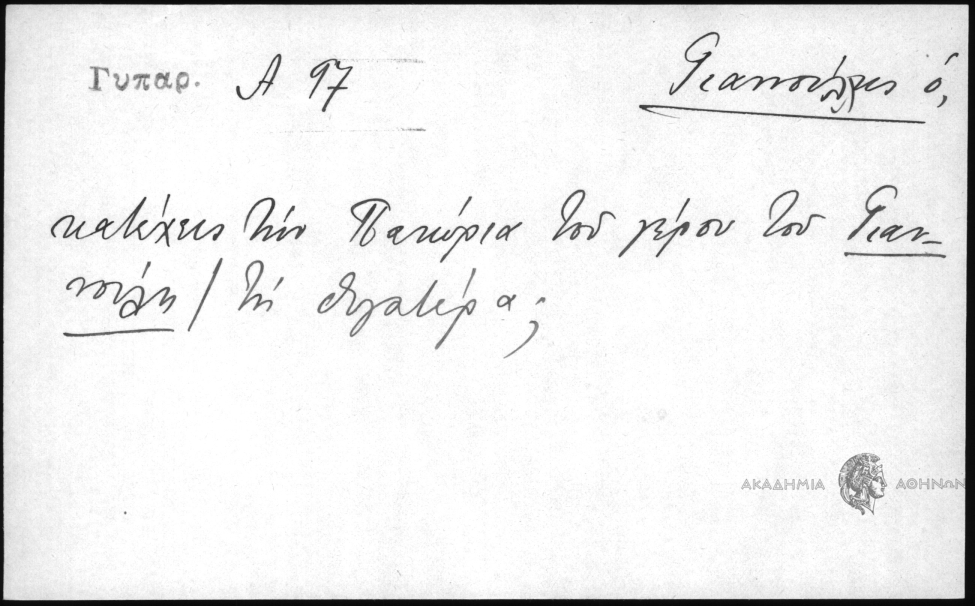 Γυπαρ. Α 97 Γιαννούλης ὁ,
κατέχεις τὴν Πανώρια τοῦ γέρου τοῦ Γιαν-
νούλη / τὴ θυγατέρα;
ΑΚΑΔΗΜΙΑ ΑΘΗΝΩΝ